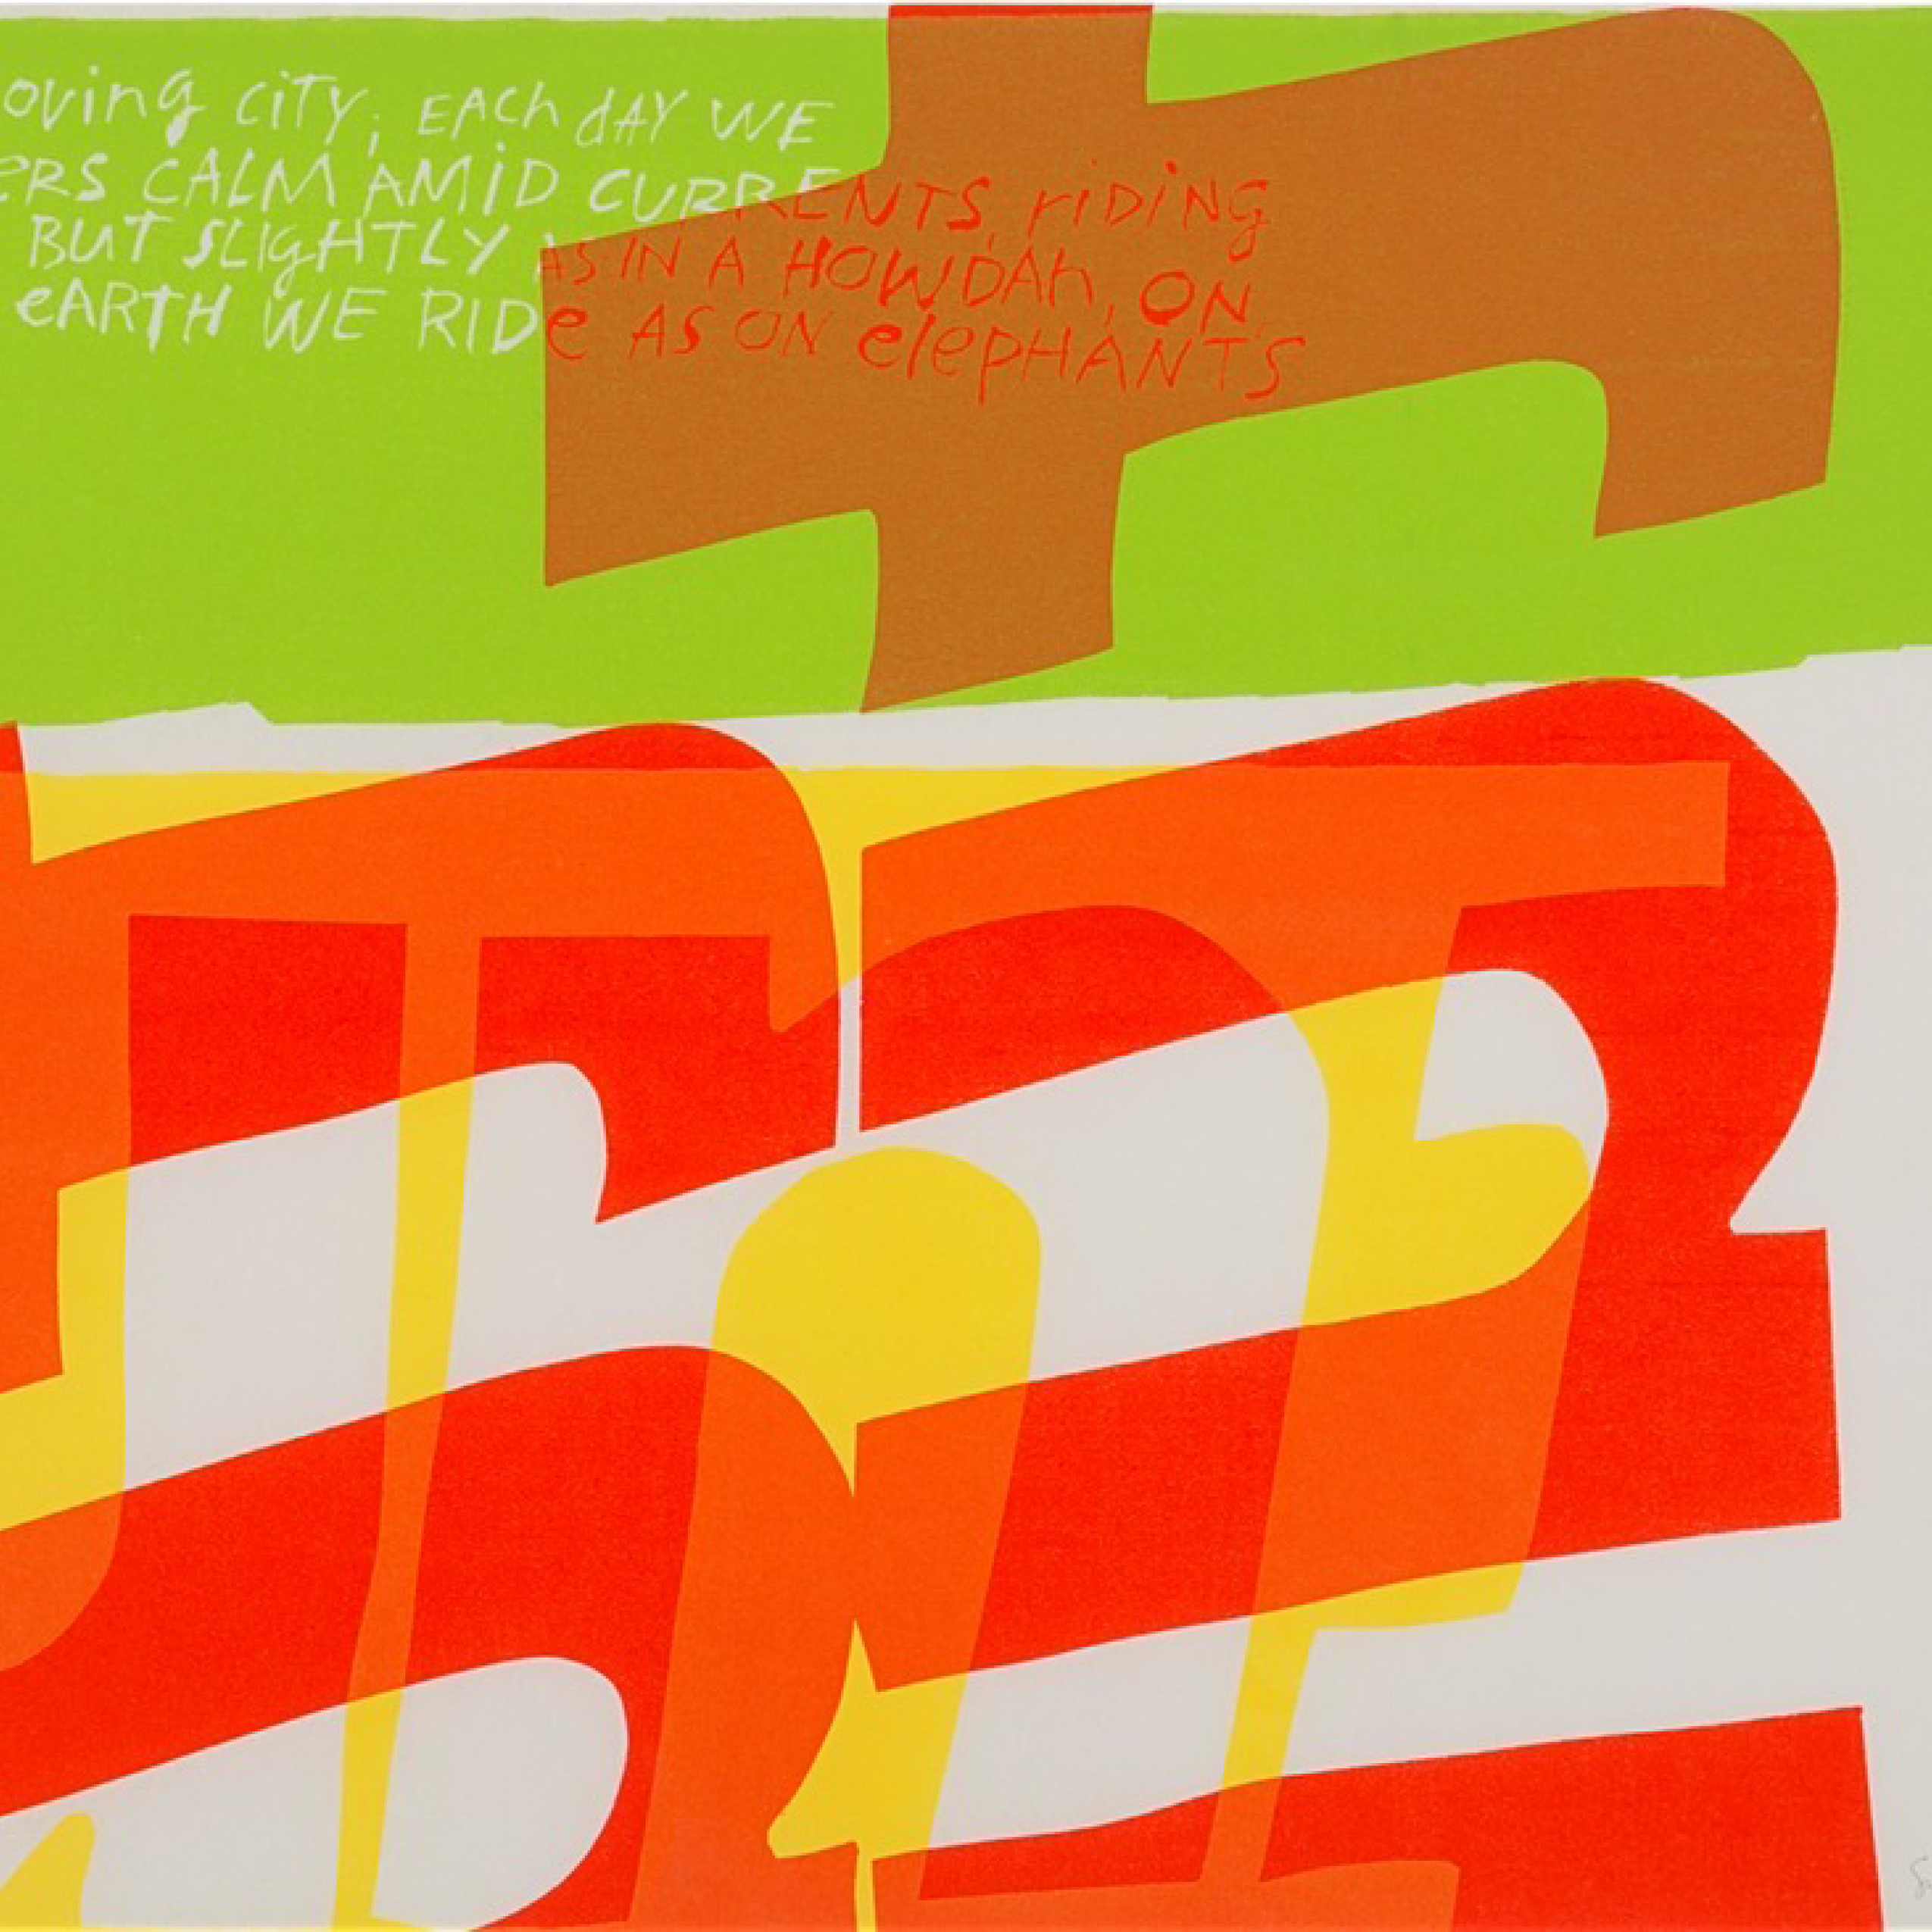 oving ciTy; EACh dAY WE
eRS CALM AMiD CURRENTS, riDiNg
BUT SLIgHTLY AS IN A HOWDAh, ON
eARTH WE RIDe AS ON elepHANTS